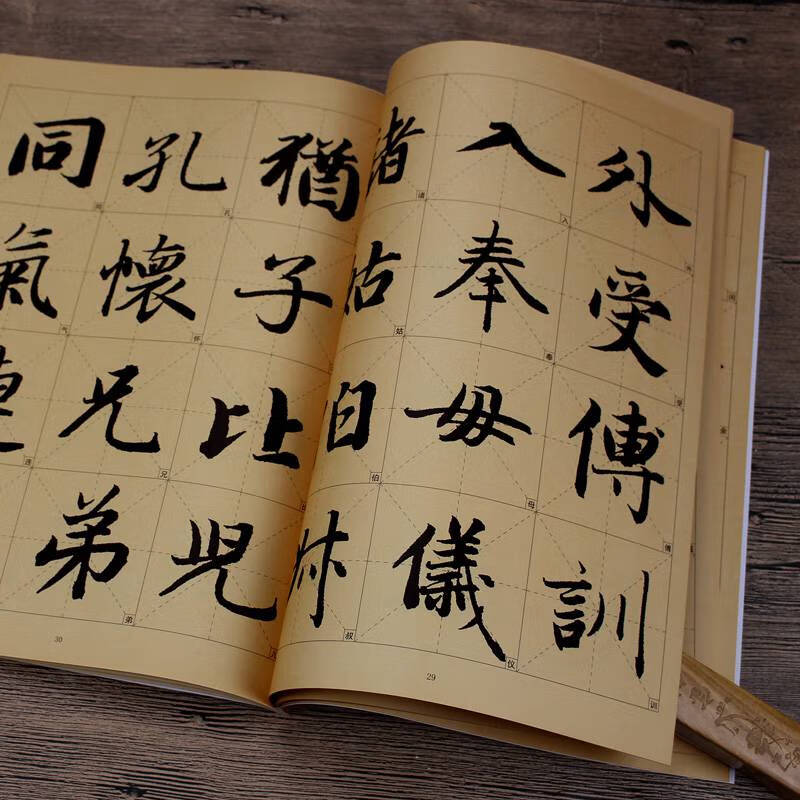 外受傅訓
入奉母儀
諸姑伯叔
29
猶子比兒
孔懷兄弟
同氣連
30
外
受
傅
训
入
奉
母
仪
诸
姑
伯
叔
孔
怀
兄
弟
同
气
连